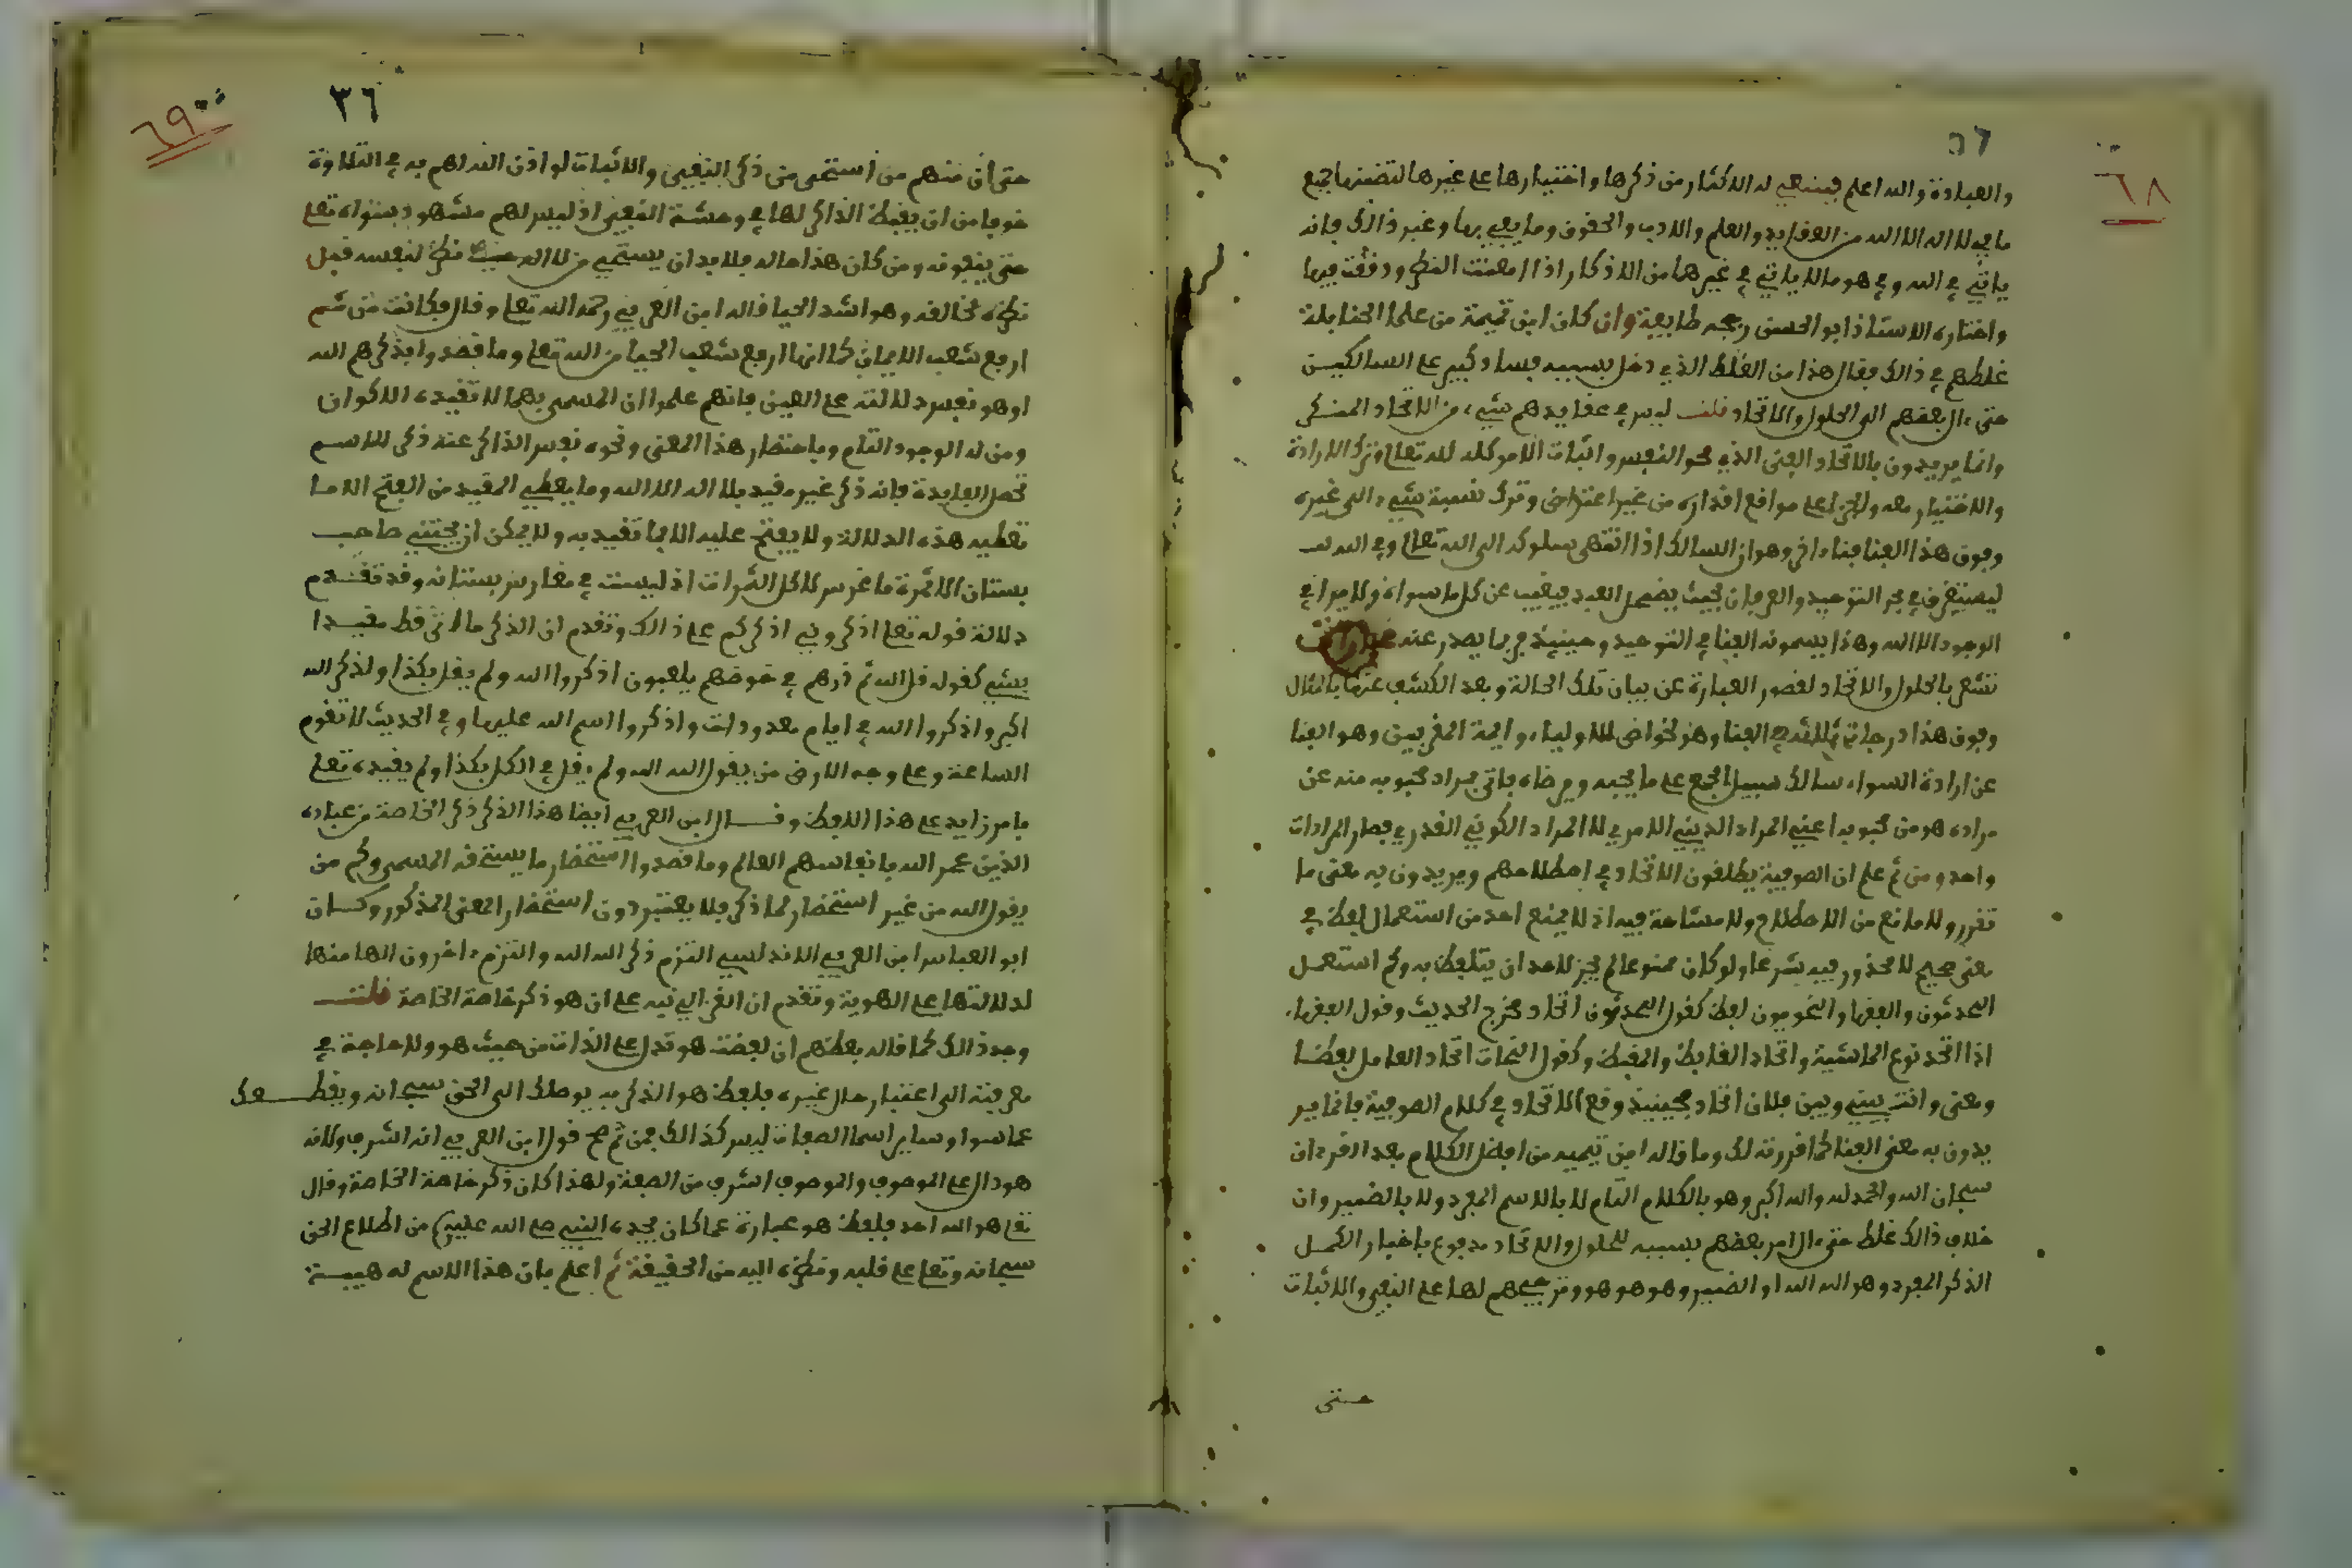 ٦٨
٣٦
والعبادة والله اعلم فينبغي له الاكثار من ذكرها واختيارها على غيرها لتضمنها جميع
ما في لا اله الا الله من العقايد والعلم والادب والحقوق وما يعي بها وغير ذالك فانه
ياتي في الله وفي هو ما لا ياتي في غيرهما من الاذكار اذا امعنت الفكر ودققت فيها
واختاره الاستاذ ابو الحسن رجحه طايفة وان كان ابن تيمية من علما الحنابلة
غلطهم في ذالك فقال هذا من الغلط الذي دخل بسببه فساد كبير على السالكين
حتى ءال بعضهم الى الحلول والاتحاد قلت ليس في عقايدهم شيء من الاتحاد المنكر
وانما يريدون بالاتحاد الفنى الذي محو النفس واثبات الامر كله لله تعلى وترك الارادة
والاختيار معه والجري على مواقع اقداره من غير اعتراض وترك نسبة شيء الى غيره
وفوق هذا الفنا فناء اخر وهو ان السالك اذا انتهى سلوكه الى الله تعلى وفي الله
ليستغرق في بحر التوحيد والعرفان بحيث يضمحل العبد فيغيب عن كل ما سواه ولا يرا في
الوجود الا الله وهذا يسمونه الفنا في التوحيد وحينيذ فربما يصدر عنه عبارات
تشعر بالحلول والاتحاد لقصور العبارة عن بيان تلك الحالة وبعد الكشف عنها بالمثال
وفوق هذا درجة ثالثة في الفنا وهو لخواص الاولياء وايمة المقربين وهو الفنا
عن ارادة السواء سالك سبيل الجمع على ما يحبه ويرضاه ياتي بمراد محبوبه منه عن
مراده هو من محبوبه اعني المراد الديني الامري لا المراد الكوني القدري فصار المرادان
واحد ومن ثم علم ان الصوفية يطلقون الاتحاد في اصطلاحهم ويريدون به معنى ما
تقرر ولا مانع من الاصطلاح ولا مشاحة فيه اذ لا يمنع احد من استعمال لفظ في
معنى صحيح لا محذور فيه شرعا ولو كان ممنوعا لم يجز لاحد ان يتلفظ به وكم استعمل
المحدثون والفقها والنحويون لفظ كقول المحدثون اتحاد مخرج الحديث وقول الفقهاء
اذا اتحد نوع الماشية واتحاد القابض والمقبض وكقول النحات اتحاد العامل لفظا
ومعنى وانت بيني وبين فلان اتحاد فحينيذ وقع الاتحاد في كلام الصوفية فانما ير
يدون به معنى الفنا كما قررته لك وما قاله ابن تيميه من افضل الكلام بعد القرءان
سبحان الله والحمد لله والله اكبر وهو بالكلام التام لا بالاسم المفرد ولا بالضمير وان
خلاف ذالك غلط حتى ءال امر بعضهم بسببه للحلول والاتحاد مدفوع باختيار الكمل
الذكر المفرد وهو الله الله او الضمير وهو هو هو وترجيحهم لها على النفي والاثبات
حتى
٦٩
٣٦
حتى ان منهم من استحى من ذكر النفي والاثبات لولا اذن الله لهم به في التلاوة
خوفا من ان يقبض الذاكر لها في وحشة النفي اذ ليس لهم مشهود بسواه تعلى
حتى ينفونه ومن كان هذا حاله فلا بد ان يستحيي من الله حيث نظر لنفسه قبل
نظره لخالقه وهو اشد الحيا قاله ابن العربي رحمه الله تعلى وقال فكانت من ثم
ارفع شعب الايمان كما انها ارفع شعب الحيا من الله تعلى وما قصدوا بذكرهم الله
او هو نفس دلالته على العين فانهم علموا ان المسمى بهما لا تقيده الاكوان
ومن له الوجود التام وباحتضار هذا المعنى ونحوه نفس الذاكر عند ذكر الاسم
تحصل الفايدة فانه ذكر غير مقيد بلا اله الا الله وما يعطي المقيد من الفتح الا ما
تعطيه هذه الدلالة ولا يفتح عليه الا بما تقيد به ولا يمكن ان يجتني صاحب
بستان الا ثمرة ما غرس لا كل الثمرات اذ ليست في مغارس بستانه وقد تقدم
دلالة قوله تعلى اذكروني اذكركم على ذالك وتقدم ان الذكر ما اتى قط مقيدا
بشيء كقوله قل الله ثم ذرهم في خوضهم يلعبون اذكروا الله ولم يقل بكذا ولذكر الله
اكبر واذكروا الله في ايام معدودات واذكروا اسم الله عليها وفي الحديث لا تقوم
الساعة وعلى وجه الارض من يقول الله الله ولم يقل في الكل بكذا ولم يقيده تعلى
بامر زايد على هذا اللفظ وقال ابن العربي ايضا هذا الذكر ذكر الخاصة من عباده
الذين عمر الله بانفاسهم العالم وما قصدوا استحضار ما يستحقه المسمى وكم من
يقول الله من غير استحضار لما ذكر فلا يعتبر دون استحضار المعنى المذكور وكان
ابو العباس ابن العريف الاندلسي التزم ذكر الله الله والتزم ءاخرون الها منها
لدلالتها على الهوية وتقدم ان الغزالي نبه على ان هو ذكر خاصة الخاصة قلت
وجه ذالك كما قاله بعضهم ان لفظة هو تدل على الذات من حيث هو ولا حاجة في
معرفته الى اعتبار حال غيره فلفظ هو الذكر به يوصلك الى الحق سبحانه ويقطعك
عما سوا وساير اسما الصفات ليس كذالك فمن ثم صح قول ابن العربي انه اشرف ولانه
هو دال على الموصوف والموصوف اشرف من الصفة ولهذا كان ذكر خاصة الخاصة وقال
تعلى هو الله احد فلفظ هو عبارة عما كان يجده النبي صلى الله عليه من اطلاع الحق
سبحانه وتعلى على قلبه ونظره اليه من الحقيقة ثم اعلم بان هذا الاسم له هيبة